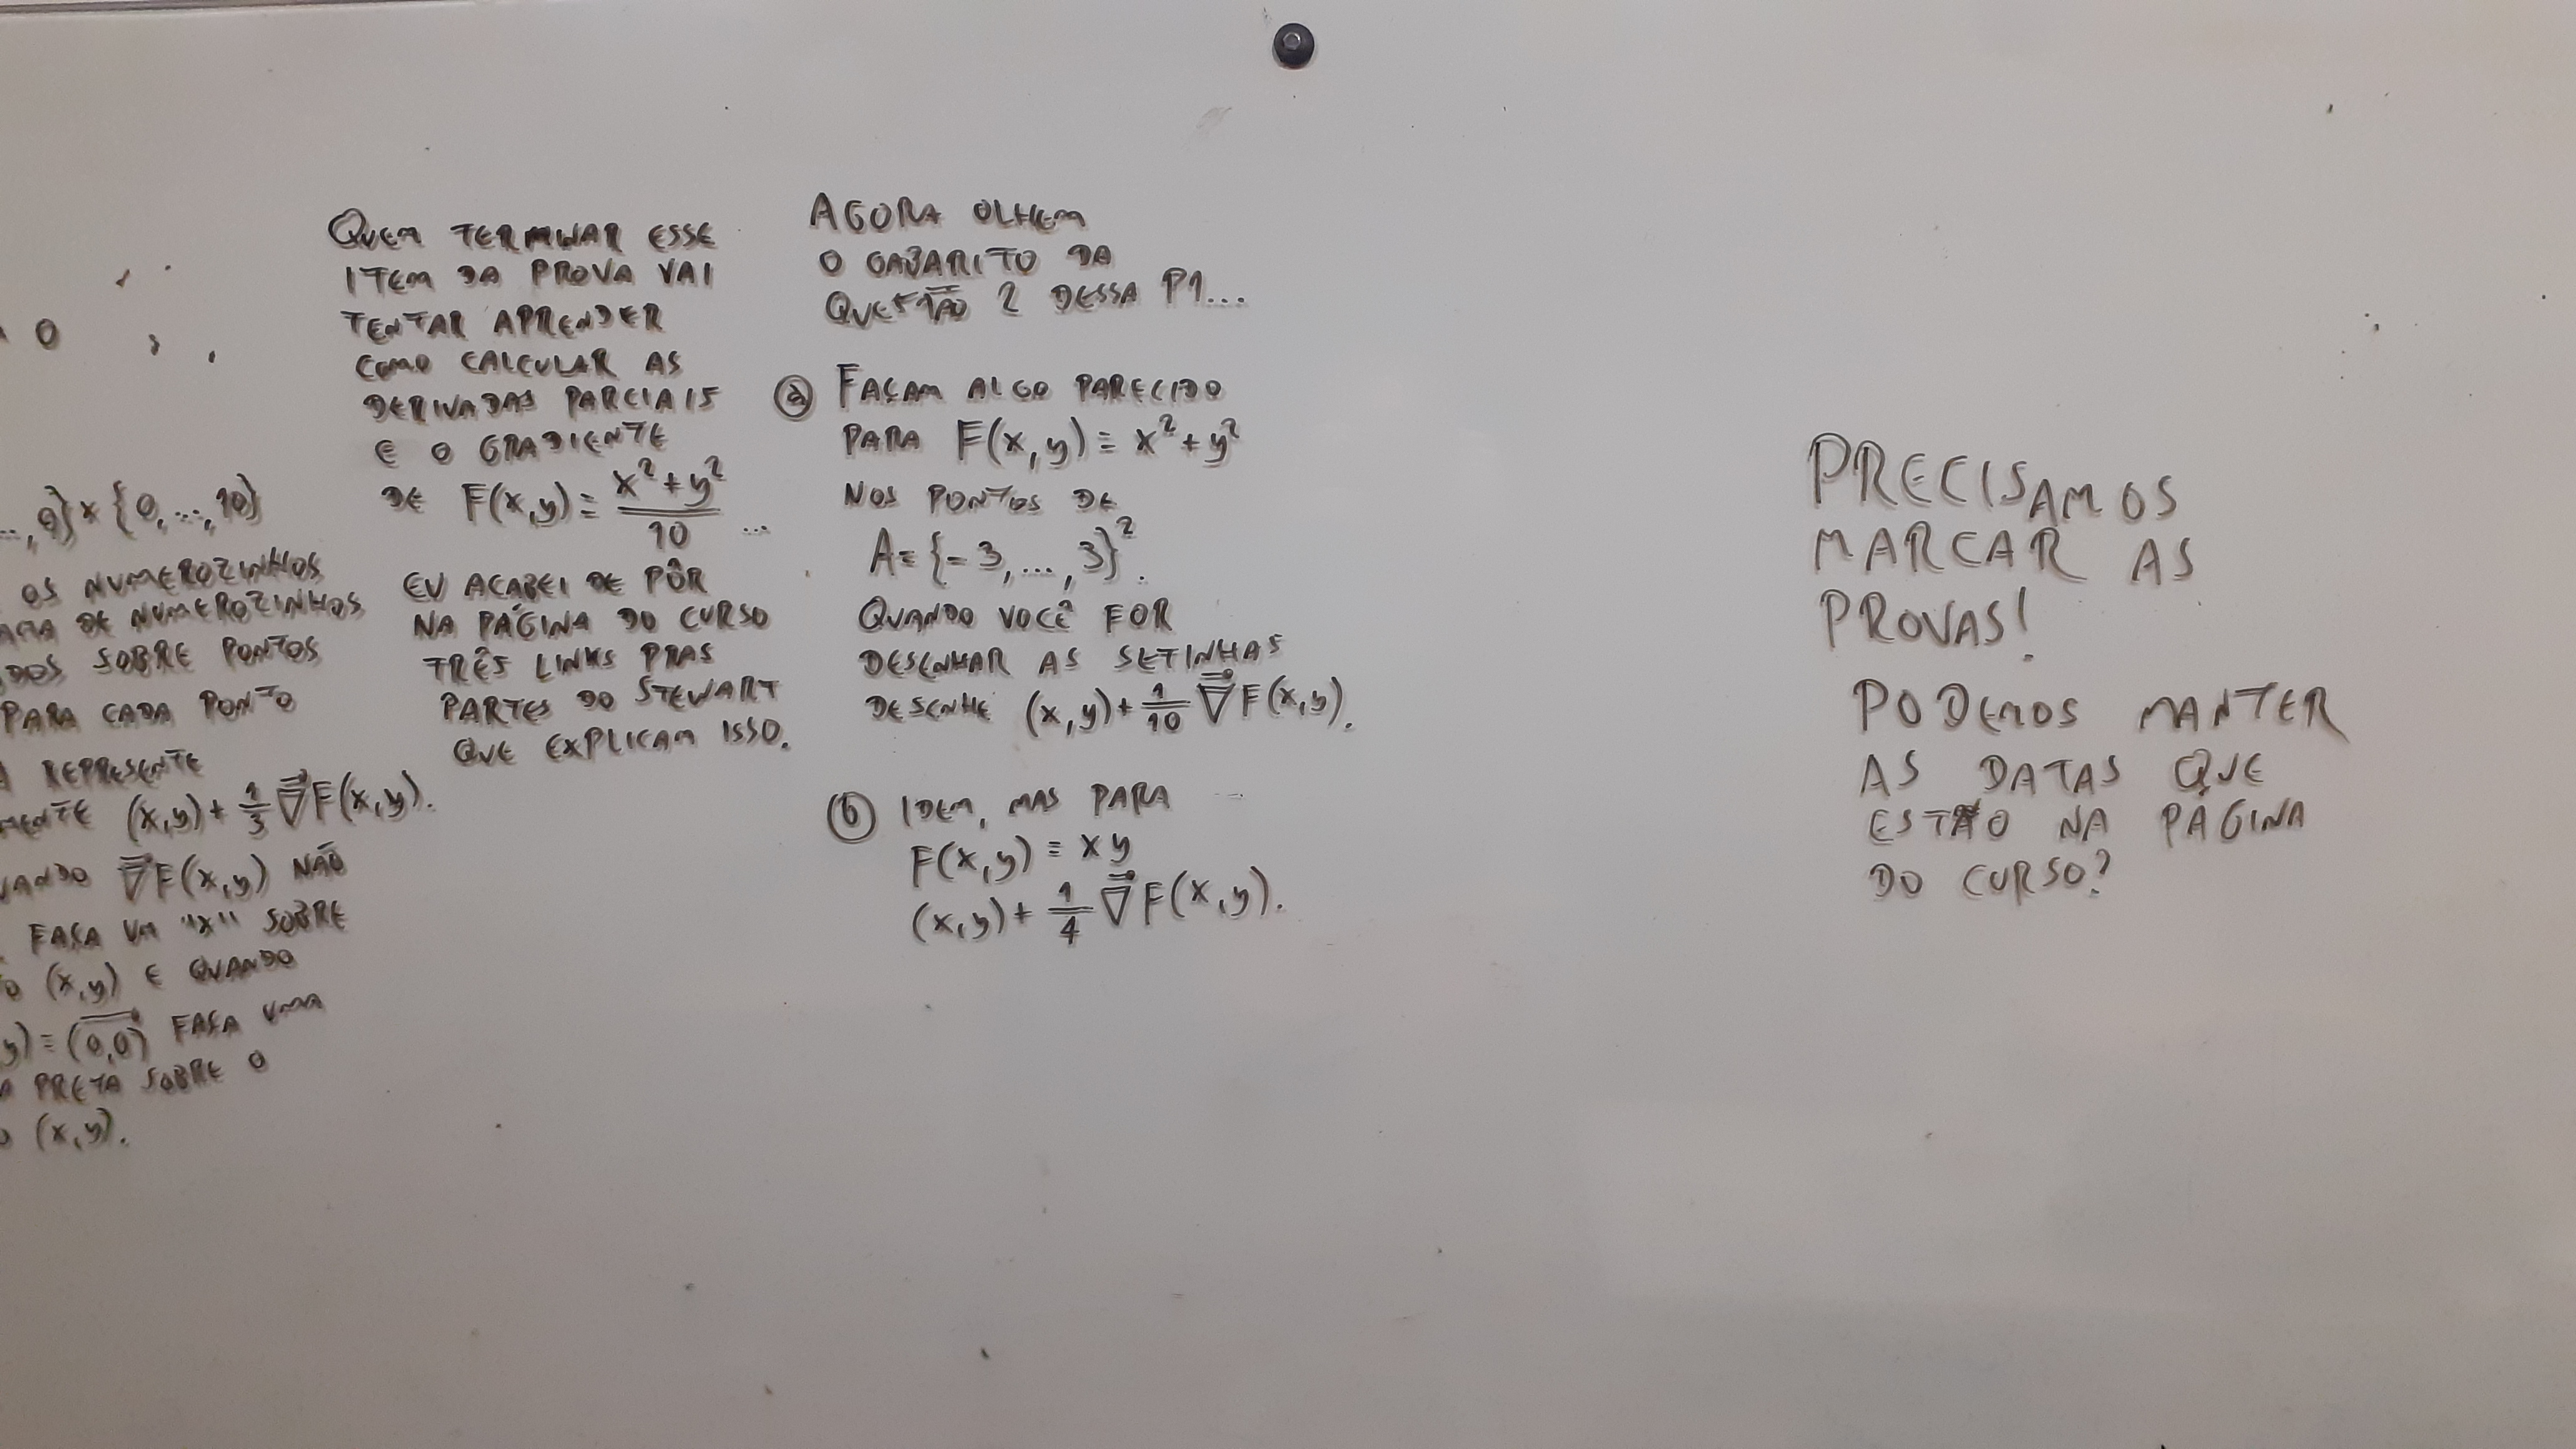 O
..., 0} × {0, ..., 10}
OS NUMEROZINHOS
DE NUMEROZINHOS
SOBRE PONTOS
PARA CADA PONTO
REPRESENTE
(x,y) + 1/3 ∇⃗F(x,y).
∇⃗F(x,y) NÃO
FAÇA UM "X" SOBRE
(x,y) E QUANDO
y) = (0,0)⃗ FAÇA UMA
PRETA SOBRE O
(x,y).
QUEM TERMINAR ESSE
ITEM DA PROVA VAI
TENTAR APRENDER
COMO CALCULAR AS
DERIVADAS PARCIAIS
E O GRADIENTE
DE F(x,y) = (x²+y²)/10 ...
EU ACABEI DE PÔR
NA PÁGINA DO CURSO
TRÊS LINKS PRAS
PARTES DO STEWART
QUE EXPLICAM ISSO.
AGORA OLHEM
O GABARITO DA
QUESTÃO 2 DESSA P1...
(a) FAÇAM ALGO PARECIDO
PARA F(x,y) = x²+y²
NOS PONTOS DE
A = {-3, ..., 3}².
QUANDO VOCÊ FOR
DESENHAR AS SETINHAS
DESENHE (x,y) + 1/10 ∇⃗F(x,y).
(b) IDEM, MAS PARA
F(x,y) = xy
(x,y) + 1/4 ∇⃗F(x,y).
PRECISAMOS
MARCAR AS
PROVAS!
PODEMOS MANTER
AS DATAS QUE
ESTÃO NA PÁGINA
DO CURSO?